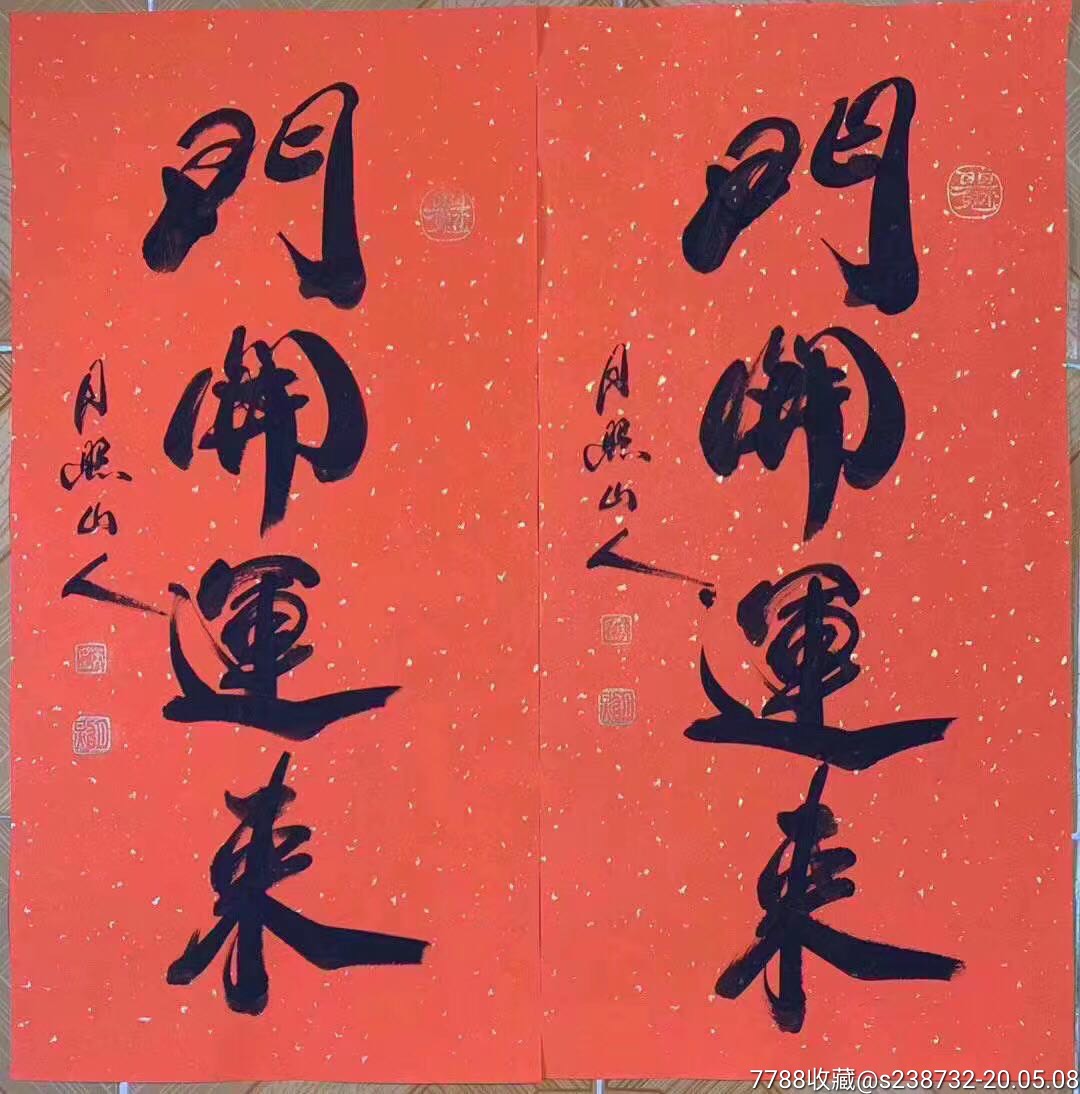 門開運來
月照山人
門開運來
月照山人
7788收藏@s238732-20.05.08